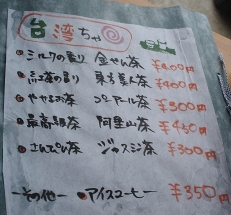 台湾ちゃ
ミルクの香り 金せん茶 ¥400
紅茶の香り 東方美人茶 ¥400
やせるお茶 プーアール茶 ¥300
最高級茶 阿里山茶 ¥450
さんぴん茶 ジャスミン茶 ¥300
ーその他ー アイスコーヒー ¥350